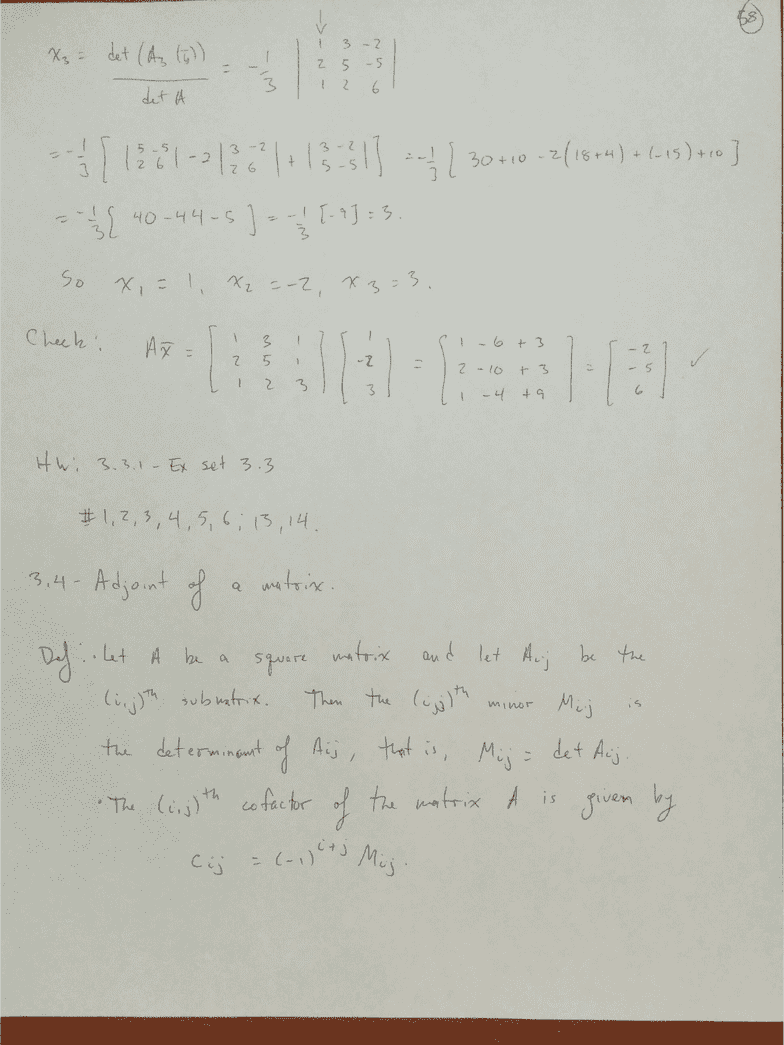 58
x₃ = det(A₃(b̄)) / det A = -1/3 | 1 3 -2 ; 2 5 -5 ; 1 2 6 |
= -1/3 [ |5 -5 ; 2 6| - 2 |3 -2 ; 2 6| + |3 -2 ; 5 -5| ] = -1/3 [ 30+10 - 2(18+4) + (-15)+10 ]
= -1/3 [ 40-44-5 ] = -1/3 [-9] = 3.
So x₁ = 1, x₂ = -2, x₃ = 3.
Check: Ax̄ = [ 1 3 1 ; 2 5 1 ; 1 2 3 ] [ 1 ; -2 ; 3 ] = [ 1 - 6 + 3 ; 2 - 10 + 3 ; 1 - 4 + 9 ] = [ -2 ; -5 ; 6 ] ✓
HW: 3.3.1 - Ex set 3.3
# 1, 2, 3, 4, 5, 6; 13, 14.
3.4 - Adjoint of a matrix.
Def: • Let A be a square matrix and let Aij be the
(i,j)th submatrix. Then the (i,j)th minor Mij is
the determinant of Aij, that is, Mij = det Aij.
• The (i,j)th cofactor of the matrix A is given by
Cij = (-1)^(i+j) Mij.